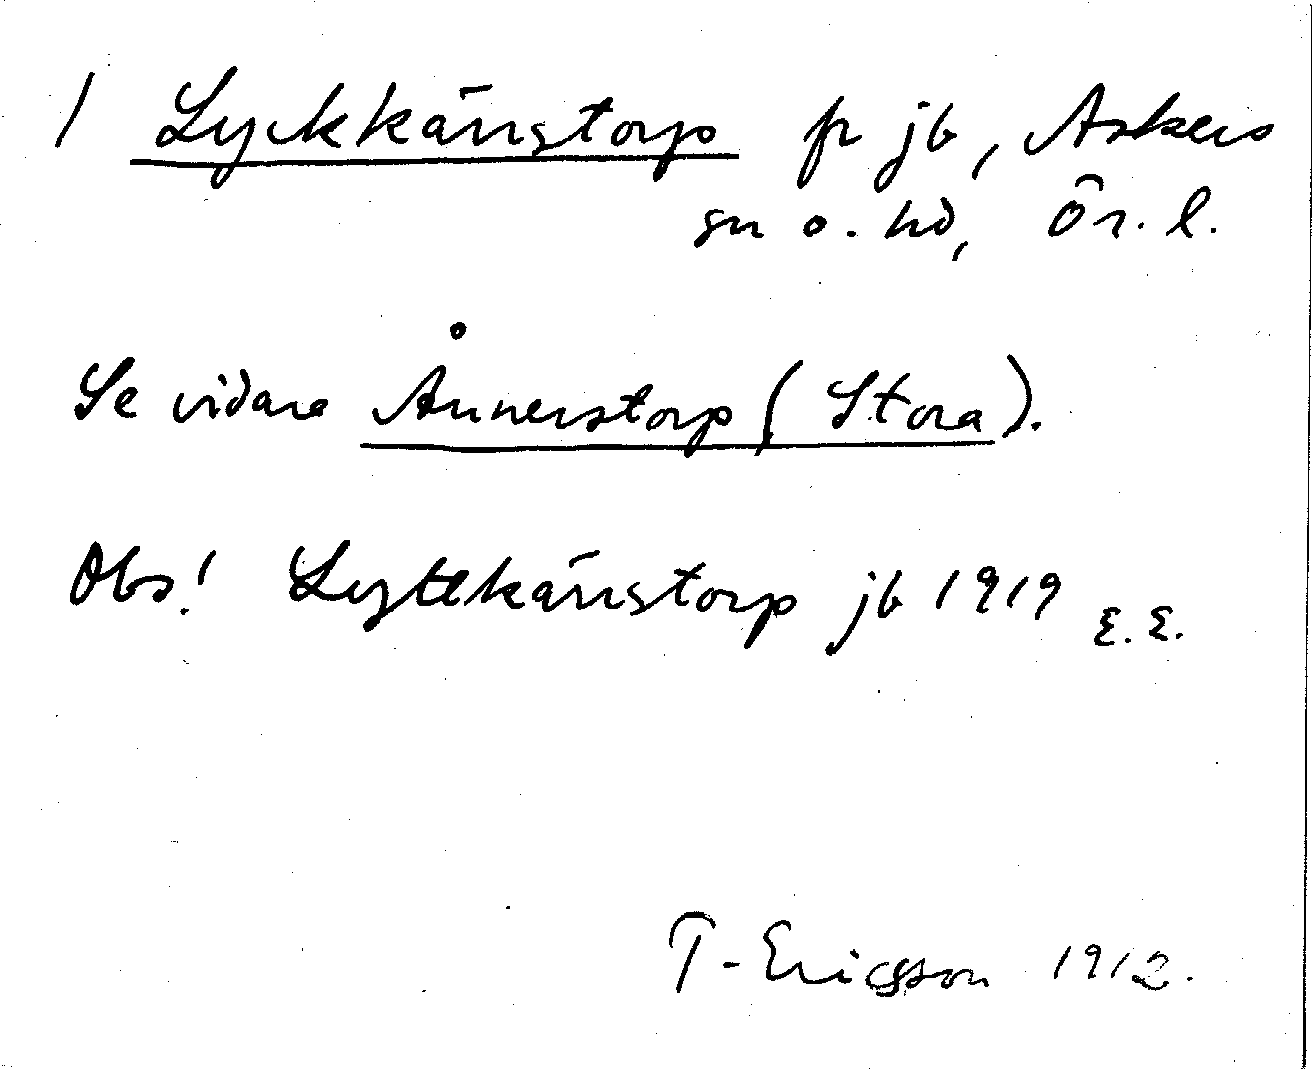 / Lyckkänstorp fr jb, Askers
sn o. hd, Ör. l.
Se vidare Ånnerstorp (Stora).
Obs! Lyttkänstorp jb 1919 E. E.
T. Ericsson 1912.